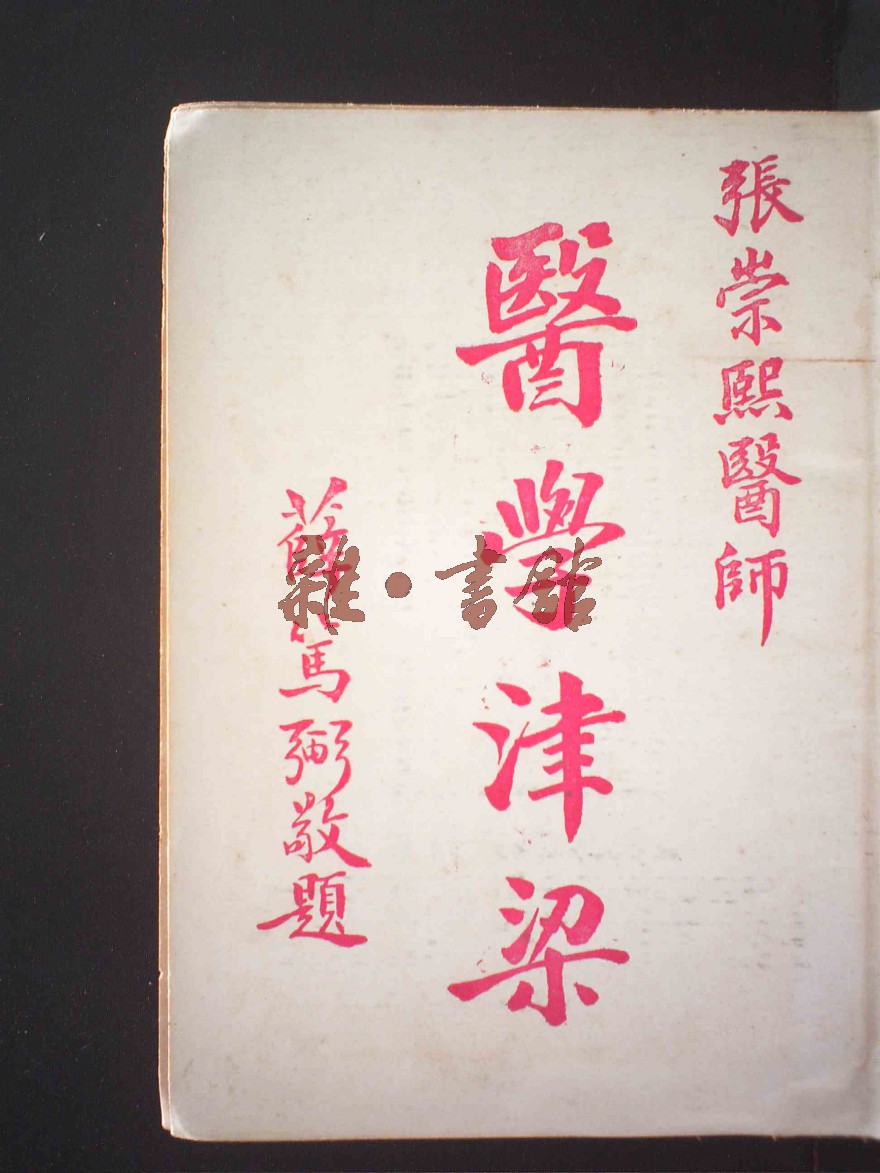 張崇熙醫師
醫學津梁
薛篤弼敬題
雜·書館